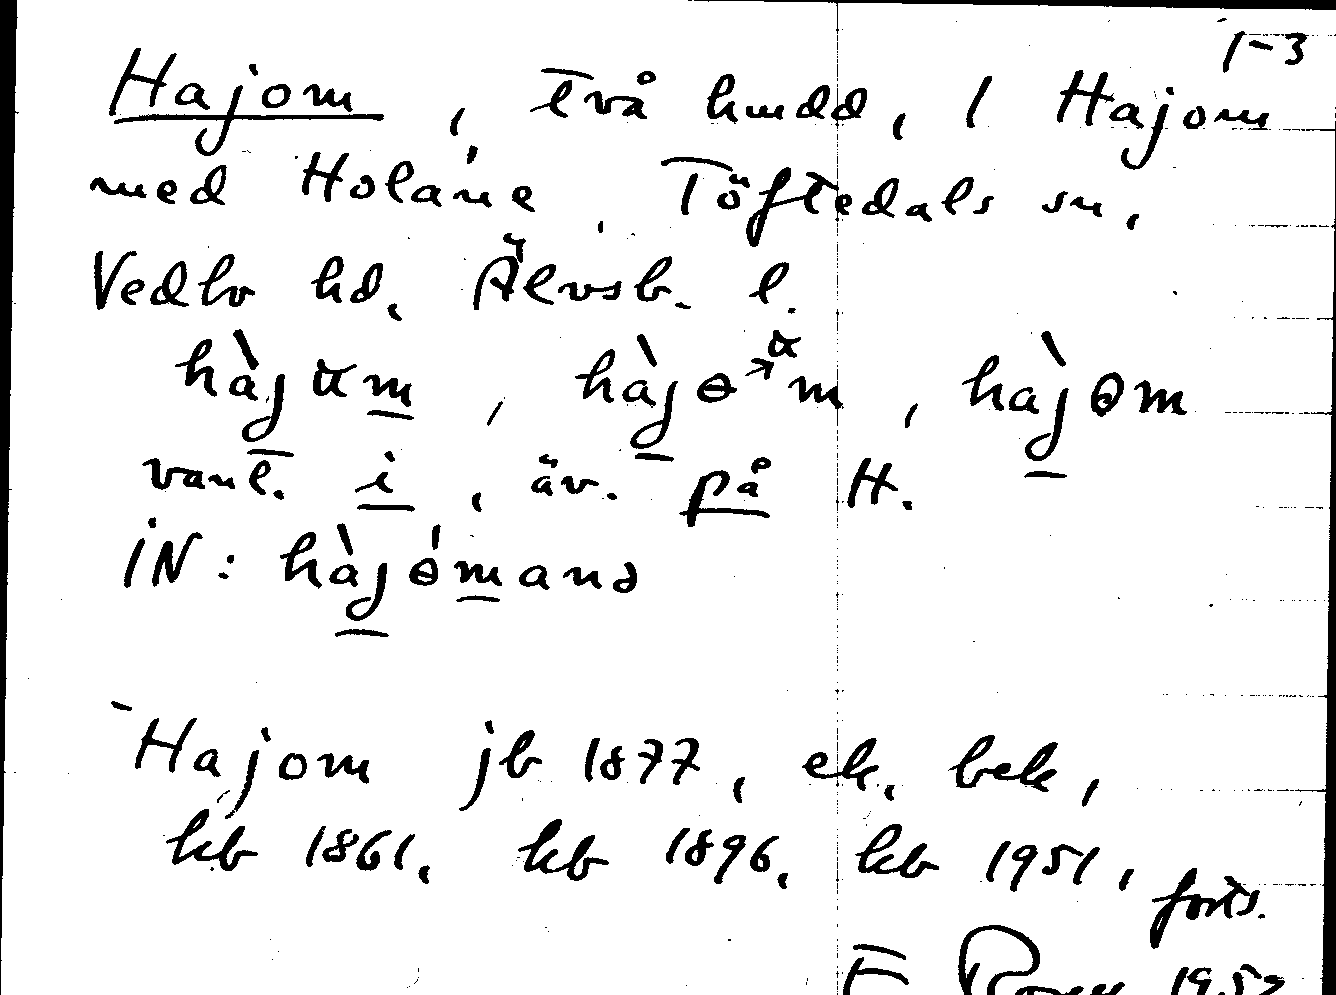 1-3
Hajom, två hmdd, 1 Hajom
med Holane, Töftedals sn,
Vedbo hd, Älvsb. l.
hàjɑm, hàjɵ→ɑm, hàjɵm
vanl. i, äv. på H.
IN: hàjɵ́manə
Hajom jb 1877, ek. bek,
kb 1861, kb 1896, kb 1951,
forts.